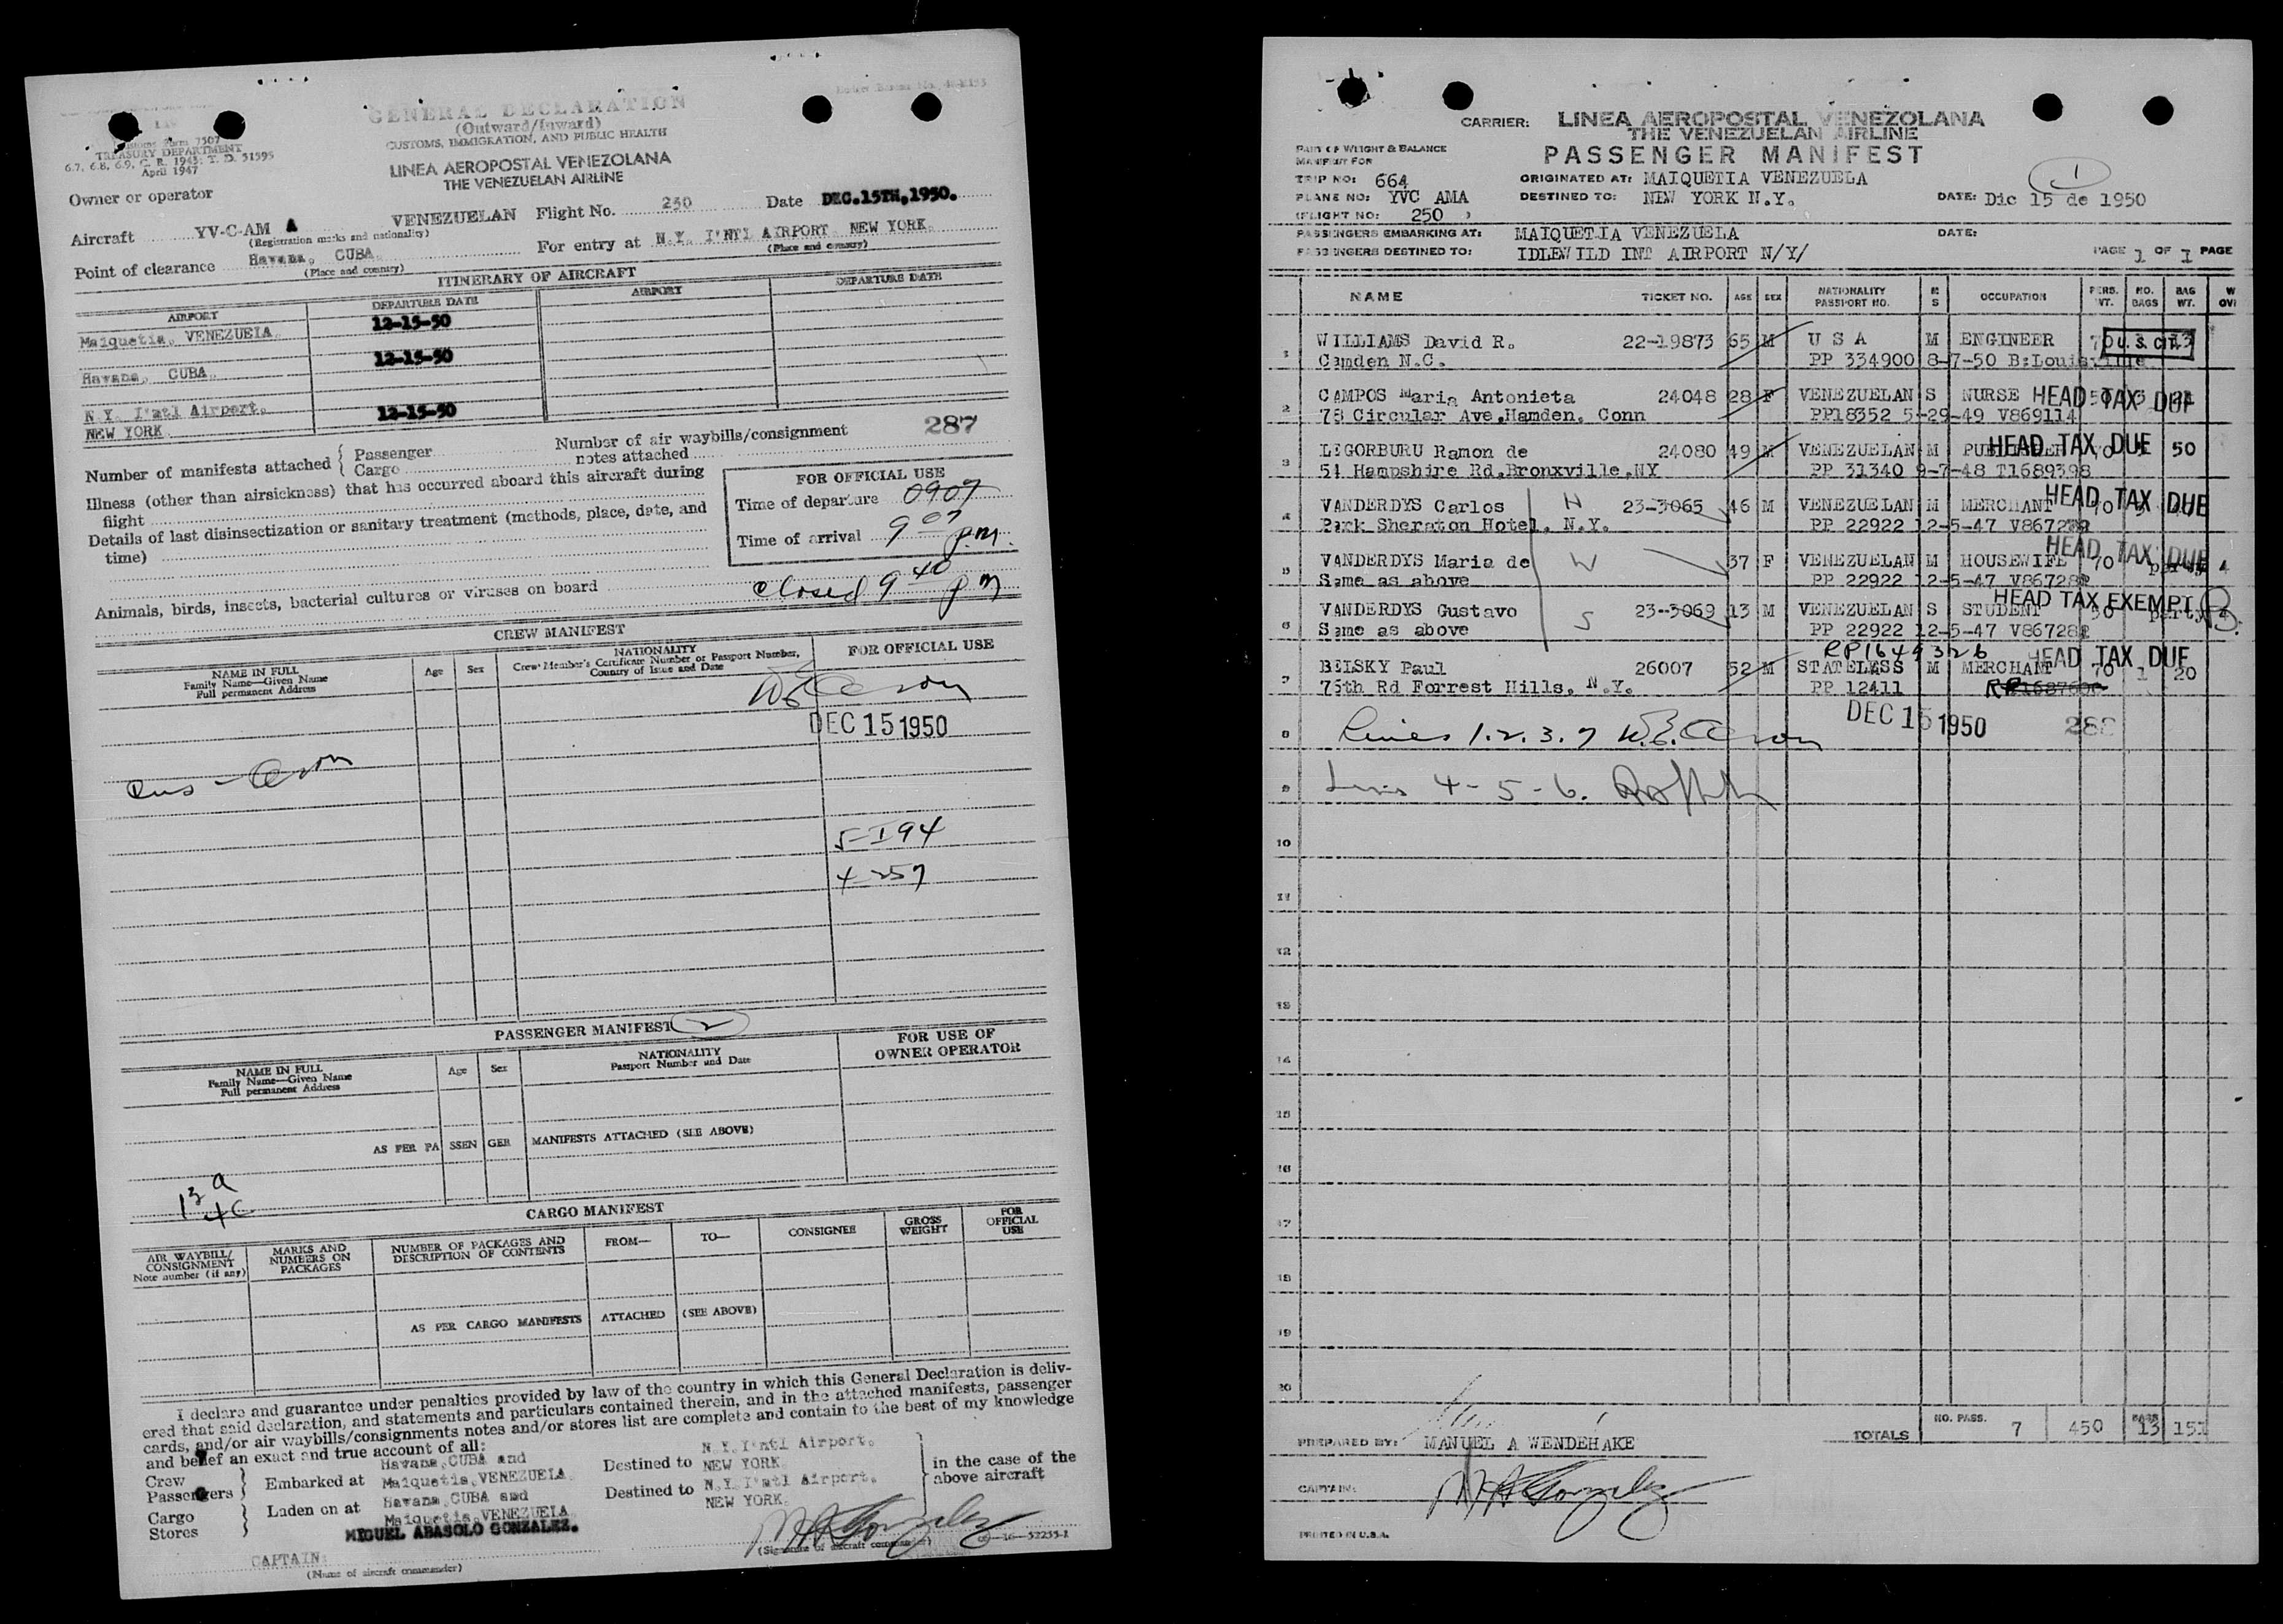 GENERAL DECLARATION
(Outward/Inward)
CUSTOMS, IMMIGRATION, AND PUBLIC HEALTH
LINEA AEROPOSTAL VENEZOLANA
THE VENEZUELAN AIRLINE
Customs Form 7507
TREASURY DEPARTMENT
6.7, 6.8, 6.9, C. R. 1943; T. D. 51595
April 1947
Owner or operator
Aircraft YV-C-AM A VENEZUELAN Flight No. 250 Date DEC.15TH,1950.
(Registration marks and nationality)
Point of clearance Havana, CUBA. For entry at N.Y. I'NTL AIRPORT NEW YORK.
(Place and country) (Place and country)
ITINERARY OF AIRCRAFT
AIRPORT DEPARTURE DATE AIRPORT DEPARTURE DATE
Maiquetia, VENEZUELA. 12-15-50
Havana, CUBA. 12-15-50
N.Y. I'ntl Airport. 12-15-50
NEW YORK
Number of manifests attached { Passenger Cargo
Number of air waybills/consignment notes attached
287
Illness (other than airsickness) that has occurred aboard this aircraft during
flight
Details of last disinsectization or sanitary treatment (methods, place, date, and
time)
FOR OFFICIAL USE
Time of departure 0907
Time of arrival 9 07 p.m.
Animals, birds, insects, bacterial cultures or viruses on board closed 9 40 pm
CREW MANIFEST
NAME IN FULL
Family Name—Given Name
Full permanent Address
Age Sex
NATIONALITY
Crew Member's Certificate Number or Passport Number,
Country of Issue and Date
FOR OFFICIAL USE
DEC 15 1950
5-I94
4-257
PASSENGER MANIFEST 2
NAME IN FULL
Family Name—Given Name
Full permanent Address
Age Sex
NATIONALITY
Passport Number and Date
FOR USE OF
OWNER OPERATOR
AS PER PASSENGER MANIFESTS ATTACHED (SEE ABOVE)
13 a
4c
CARGO MANIFEST
AIR WAYBILL/
CONSIGNMENT
Note number (if any)
MARKS AND
NUMBERS ON
PACKAGES
NUMBER OF PACKAGES AND
DESCRIPTION OF CONTENTS
FROM— TO— CONSIGNEE
GROSS
WEIGHT
FOR
OFFICIAL
USE
AS PER CARGO MANIFESTS ATTACHED (SEE ABOVE)
I declare and guarantee under penalties provided by law of the country in which this General Declaration is deliv-
ered that said declaration, and statements and particulars contained therein, and in the attached manifests, passenger
cards, and/or air waybills/consignments notes and/or stores list are complete and contain to the best of my knowledge
and belief an exact and true account of all:
Crew
Passengers } Embarked at Havana,CUBA and Maiquetia,VENEZUELA. Destined to N.Y.I'ntl Airport. NEW YORK.
Cargo
Stores } Laden on at Havana,CUBA and Maiquetia,VENEZUELA Destined to N.Y.I'ntl Airport. NEW YORK.
in the case of the
above aircraft
MIGUEL ABASOLO GONZALEZ.
CAPTAIN:
(Name of aircraft commander)
(Signature of aircraft commander)
16—52255-1
CARRIER: LINEA AEROPOSTAL VENEZOLANA
THE VENEZUELAN AIRLINE
PASSENGER MANIFEST
PART OF WEIGHT & BALANCE
MANIFEST FOR
TRIP NO: 664 ORIGINATED AT: MAIQUETIA VENEZUELA 1
PLANE NO: YVC AMA DESTINED TO: NEW YORK N.Y. DATE: Dic 15 de 1950
(FLIGHT NO: 250 )
PASSENGERS EMBARKING AT: MAIQUETIA VENEZUELA DATE:
PASSENGERS DESTINED TO: IDLEWILD INT AIRPORT N/Y/ PAGE 1 OF 1 PAGE
NAME TICKET NO. AGE SEX NATIONALITY PASSPORT NO. M S OCCUPATION PERS. WT. NO. BAGS BAG WT.
1 WILLIAMS David R. 22-19873 65 M U S A M ENGINEER 70 U. S. CIT. 13
Camden N.C. PP 334900 8-7-50 B:Louisville
2 CAMPOS Maria Antonieta 24048 28 F VENEZUELAN S NURSE HEAD TAX DUE
78 Circular Ave,Hamden. Conn PP18352 5-29-49 V869114
3 LEGORBURU Ramon de 24080 49 M VENEZUELAN M HEAD TAX DUE 50
54 Hampshire Rd,Bronxville,NY PP 31340 9-7-48 T1689398
4 VANDERDYS Carlos H 23-3065 46 M VENEZUELAN M MERCHANT HEAD TAX DUE
Park Sheraton Hotel. N.Y. PP 22922 12-5-47
5 VANDERDYS Maria de W 37 F VENEZUELAN M HOUSEWIFE 70 HEAD TAX DUE
Same as above PP 22922 12-5-47
6 VANDERDYS Gustavo S 23-3069 13 M VENEZUELAN S STUDENT HEAD TAX EXEMPT
Same as above PP 22922 12-5-47
RP1649326
7 BELSKY Paul 26007 52 M STATELESS M MERCHANT 70 1 20 HEAD TAX DUE
75th Rd Forrest Hills. N.Y. PP 12411
DEC 15 1950 288
8 Lines 1.2.3.7
9 Lines 4-5-6.
10
11
12
13
14
15
16
17
18
19
20
TOTALS NO. PASS. 7 450 BAGS 13 151
PREPARED BY: MANUEL A WENDEHAKE
CAPTAIN:
PRINTED IN U.S.A.